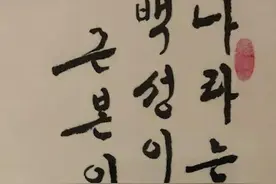 나라는
백성이
근본이